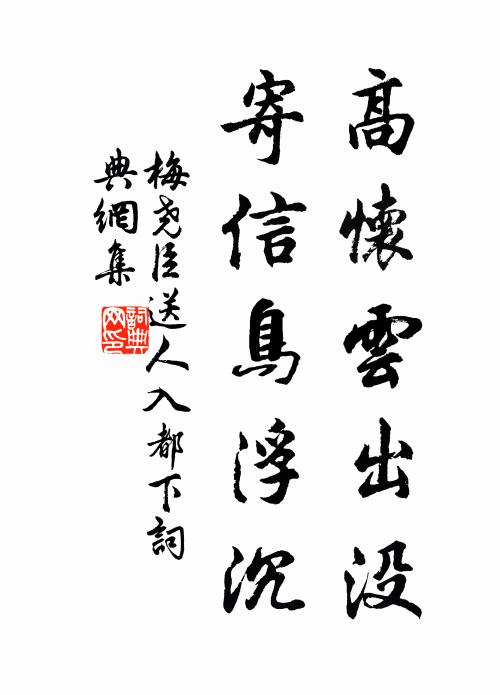 高懷雲出没
寄信鳥浮沉
梅尧臣送人入都下詞
典網集
詞典网印